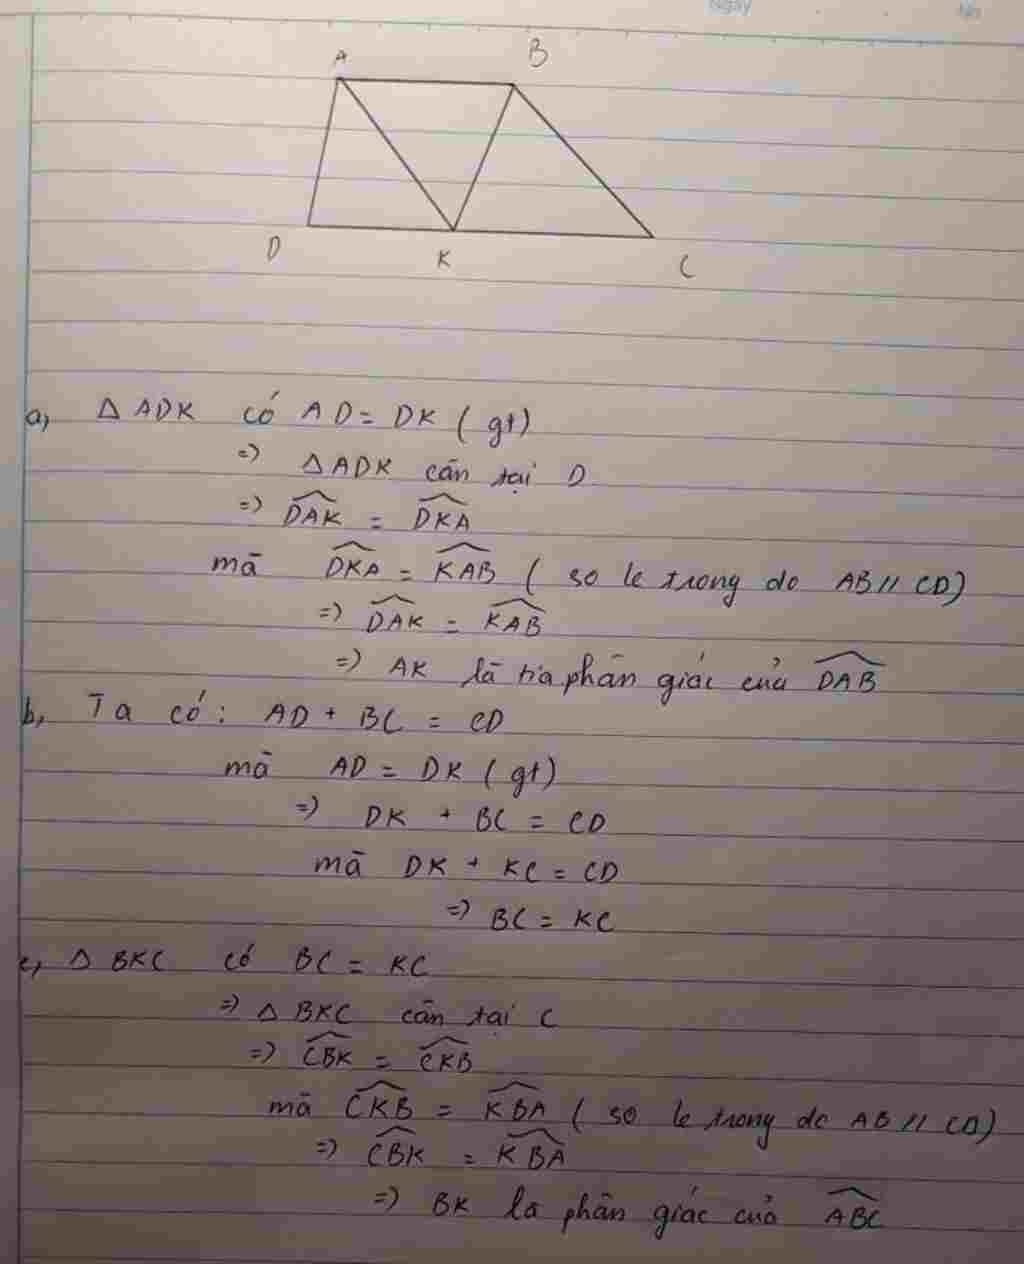 Ngày No
A B
D K C
a, Δ ADK có AD = DK ( gt)
=> ΔADK cân tại D
=> \widehat{DAK} = \widehat{DKA}
mà \widehat{DKA} = \widehat{KAB} ( so le trong do AB // CD)
=> \widehat{DAK} = \widehat{KAB}
=> AK là tia phân giác của \widehat{DAB}
b, Ta có : AD + BC = CD
mà AD = DK ( gt)
=> DK + BC = CD
mà DK + KC = CD
=> BC = KC
c, Δ BKC có BC = KC
=> Δ BKC cân tại C
=> \widehat{CBK} = \widehat{CKB}
mà \widehat{CKB} = \widehat{KBA} ( so le trong do AB // CD)
=> \widehat{CBK} = \widehat{KBA}
=> BK là phân giác của \widehat{ABC}